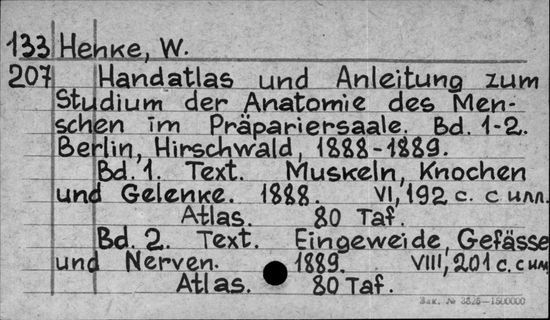 133 Henke, W.
207 Handatlas und Anleitung zum
Studium der Anatomie des Men-
schen im Präpariersaale. Bd. 1-2.
Berlin, Hirschwald, 1888-1889.
Bd. 1. Text. Muskeln, Knochen
und Gelenke. 1888. VI, 192 с. с илл.
Atlas. 80 Taf.
Bd. 2. Text. Eingeweide, Gefässe
und Nerven. 1889. VIII, 201 с. с илл
Atlas. 80 Taf.
Зак. № 3826—1500000